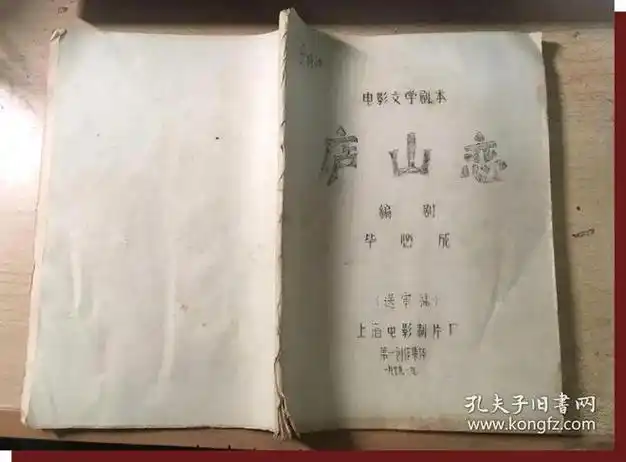 电影文学剧本
庐山恋
编剧
毕必成
（送审稿）
上海电影制片厂
第一创作集体
孔夫子旧书网
www.kongfz.com